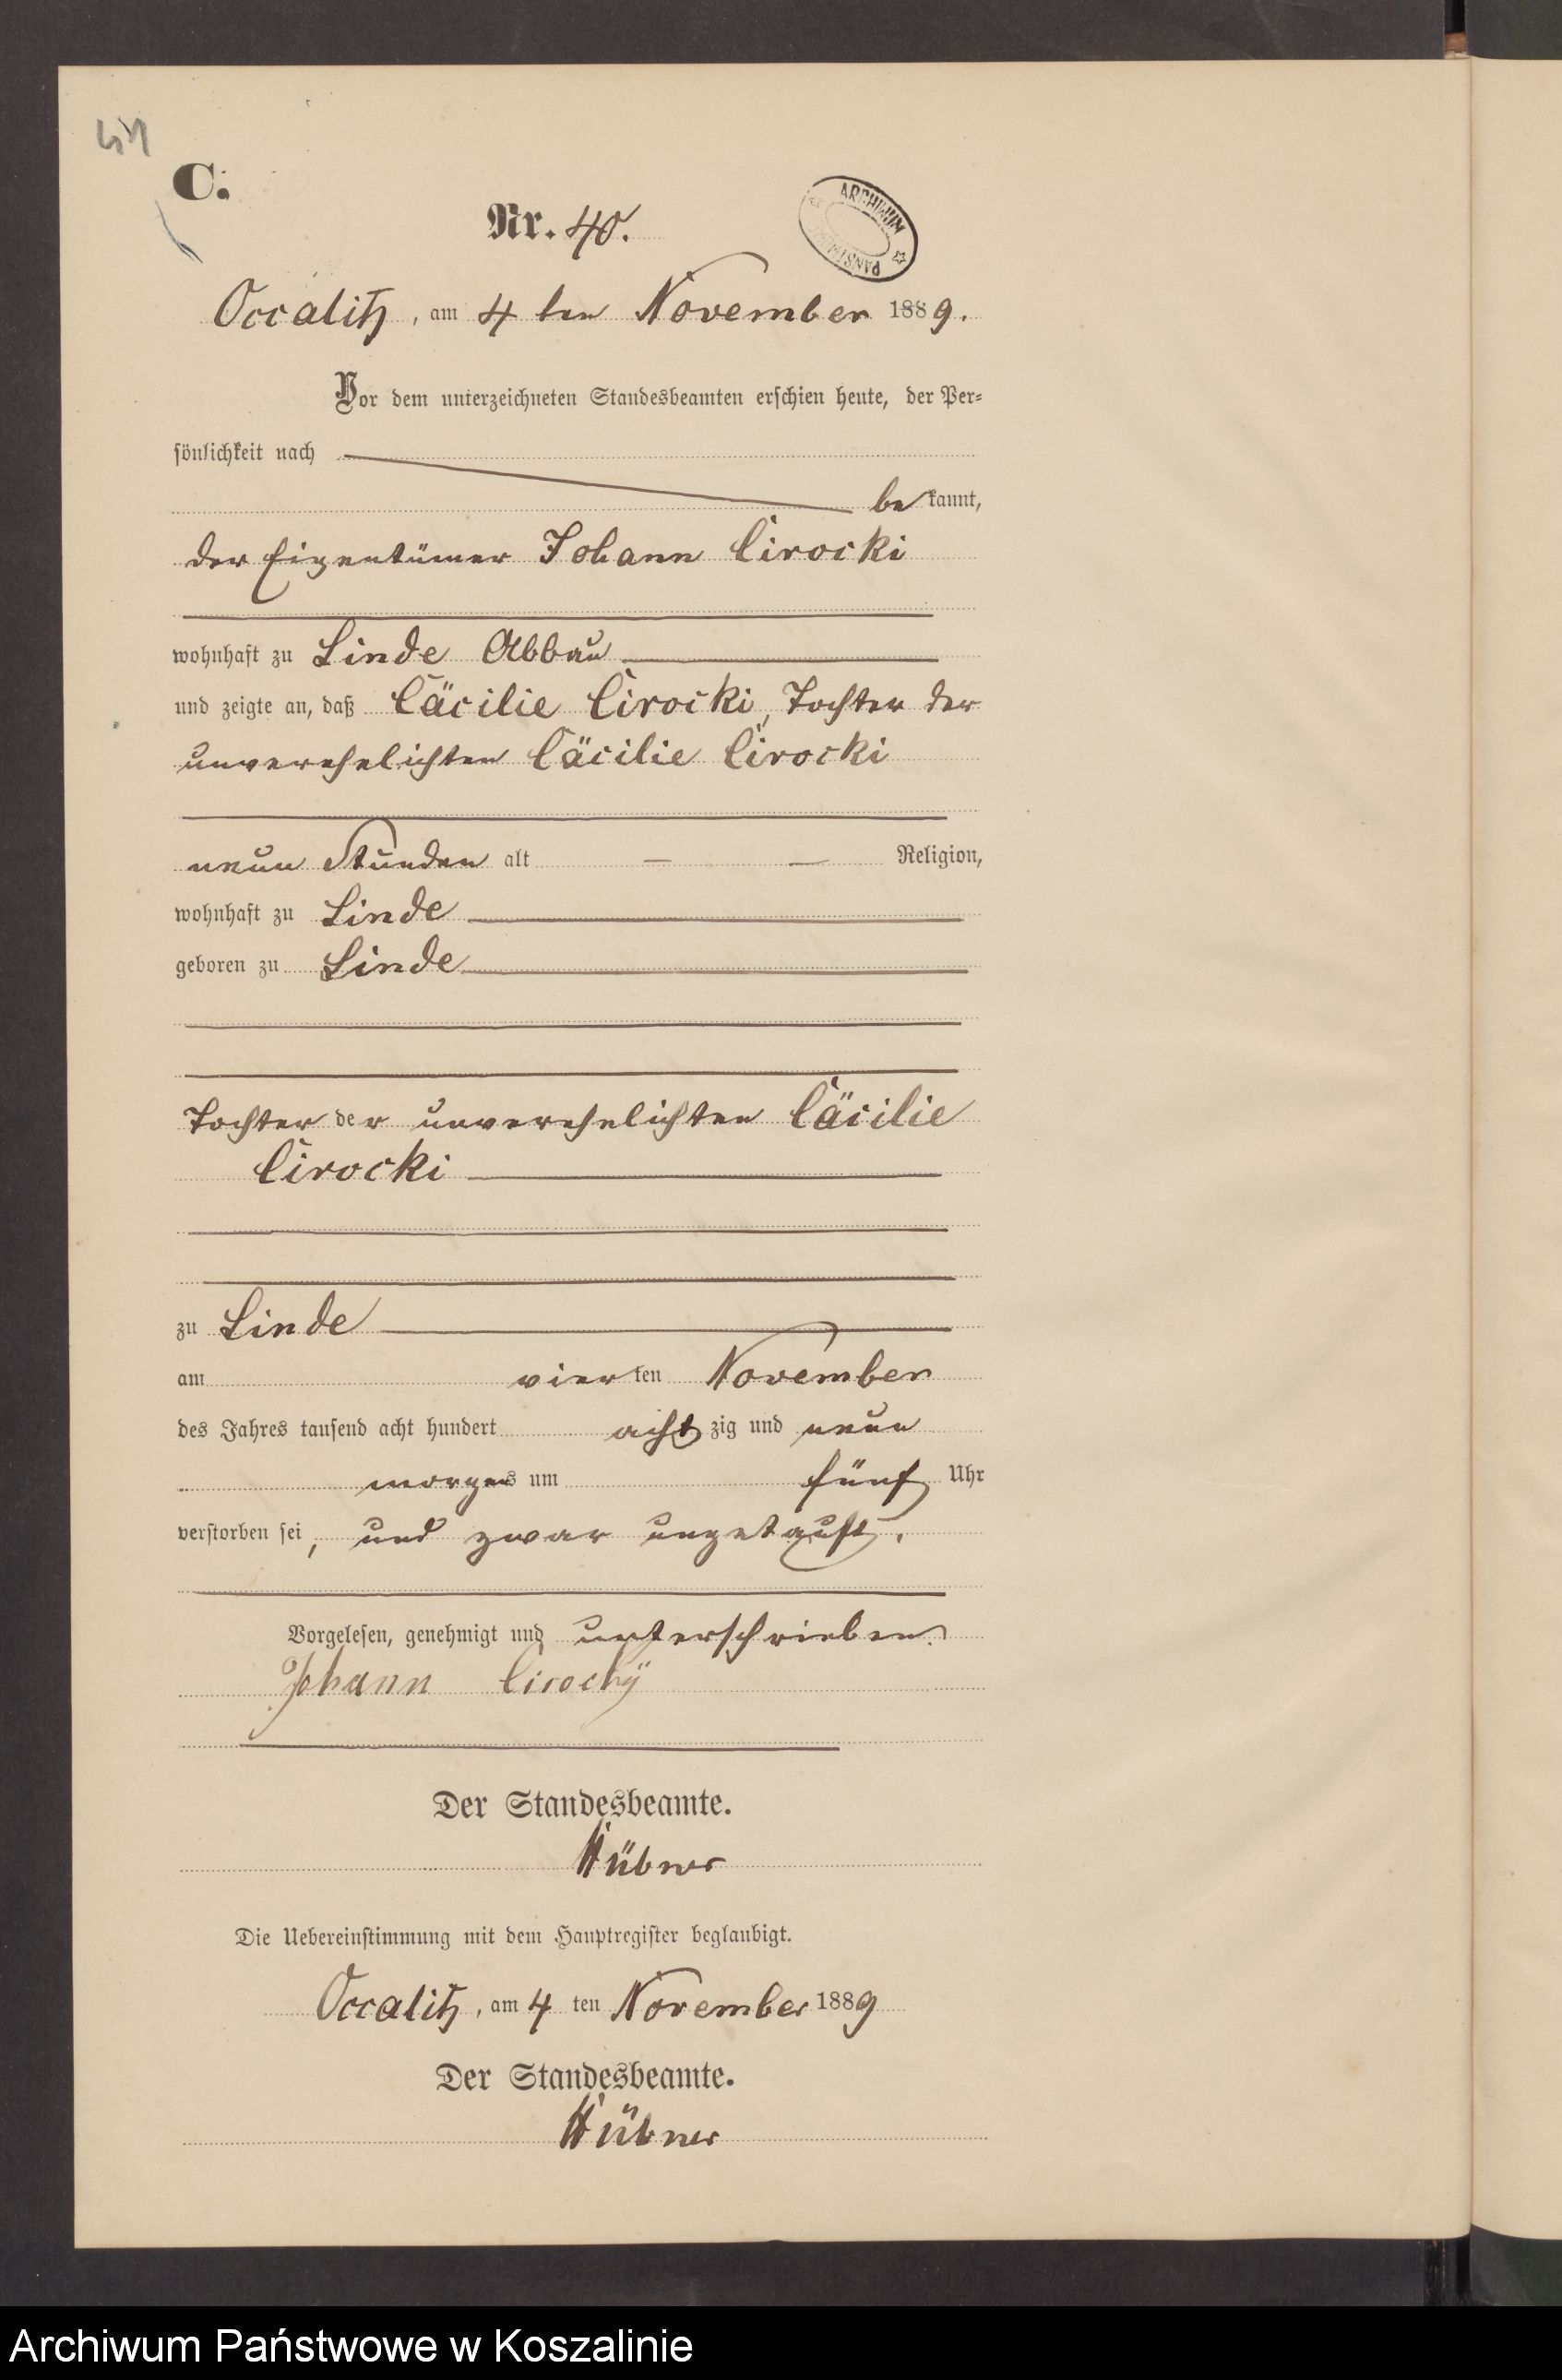 41
C.
Nr. 40.
ARCHIWUM
PAŃSTW
Occalitz, am 4 ten November 1889.
Vor dem unterzeichneten Standesbeamten erschien heute, der Per-
sönlichkeit nach
be kannt,
der Eigentümer Johann Cirocki
wohnhaft zu Linde Abbau
und zeigte an, daß Cäcilie Cirocki, Tochter der
unverehelichten Cäcilie Cirocki
neun Stunden alt — — Religion,
wohnhaft zu Linde
geboren zu Linde
Tochter der unverehelichten Cäcilie
Cirocki
zu Linde
am vierten November
des Jahres tausend acht hundert acht zig und neun
morgens um fünf Uhr
verstorben sei, und zwar ungetauft.
Vorgelesen, genehmigt und unterschrieben.
Johann Cirocky
Der Standesbeamte.
Hübner
Die Uebereinstimmung mit dem Hauptregister beglaubigt.
Occalitz, am 4 ten November 1889
Der Standesbeamte.
Hübner
Archiwum Państwowe w Koszalinie